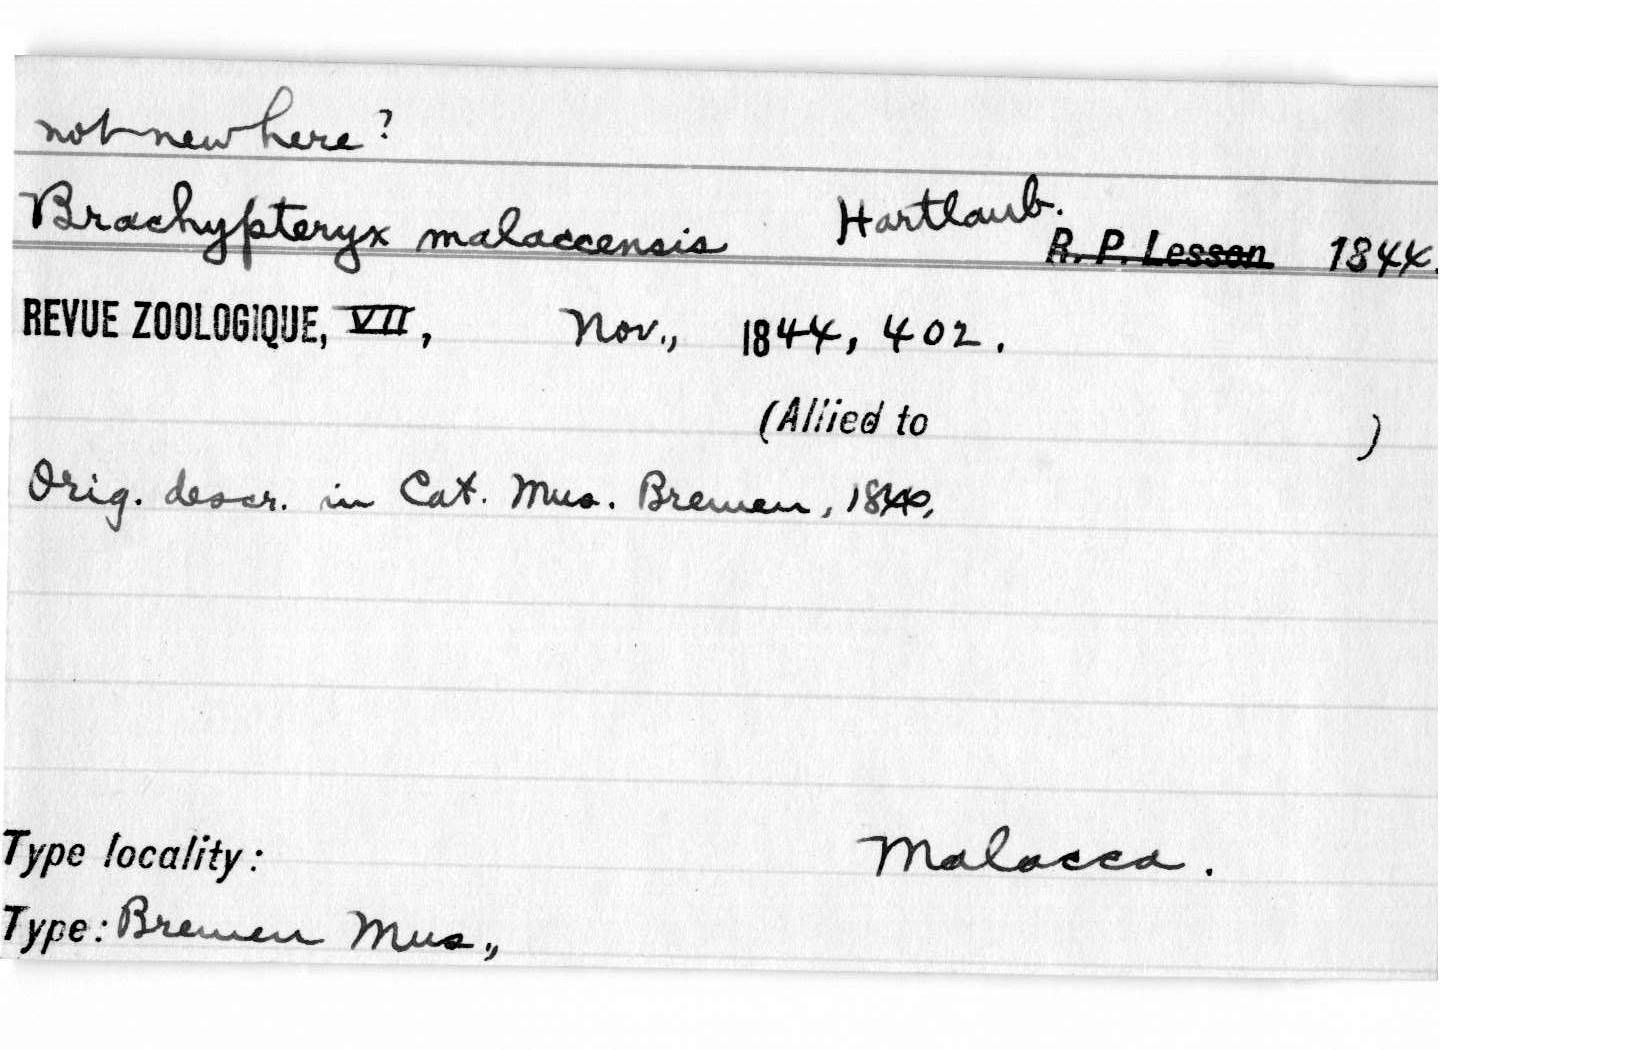 not new here?
Brachypteryx malaccensis Hartlaub.
R. P. Lesson 1844.
REVUE ZOOLOGIQUE, VII, Nov., 1844, 402.
(Allied to )
Orig. descr. in Cat. Mus. Bremen, 1844,
Type locality: Malacca.
Type: Bremen Mus.,